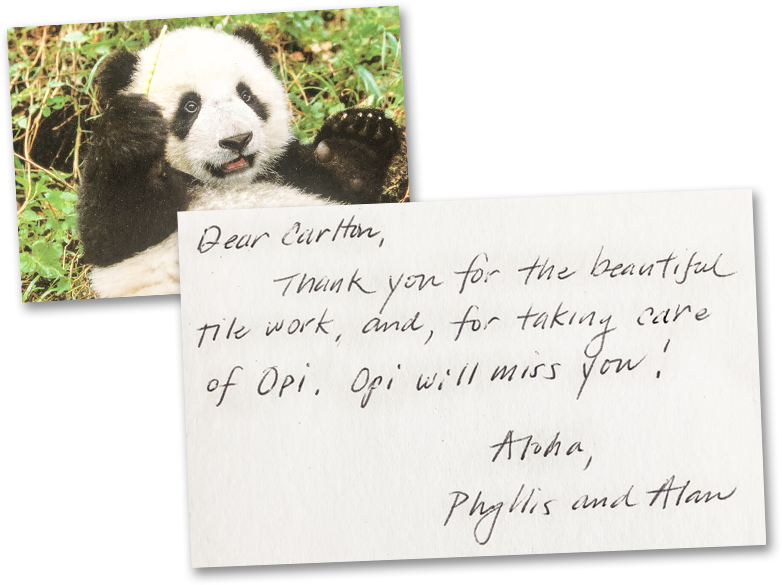 Dear Carlton,
Thank you for the beautiful
tile work, and, for taking care
of Opi. Opi will miss you!
Aloha,
Phyllis and Alan